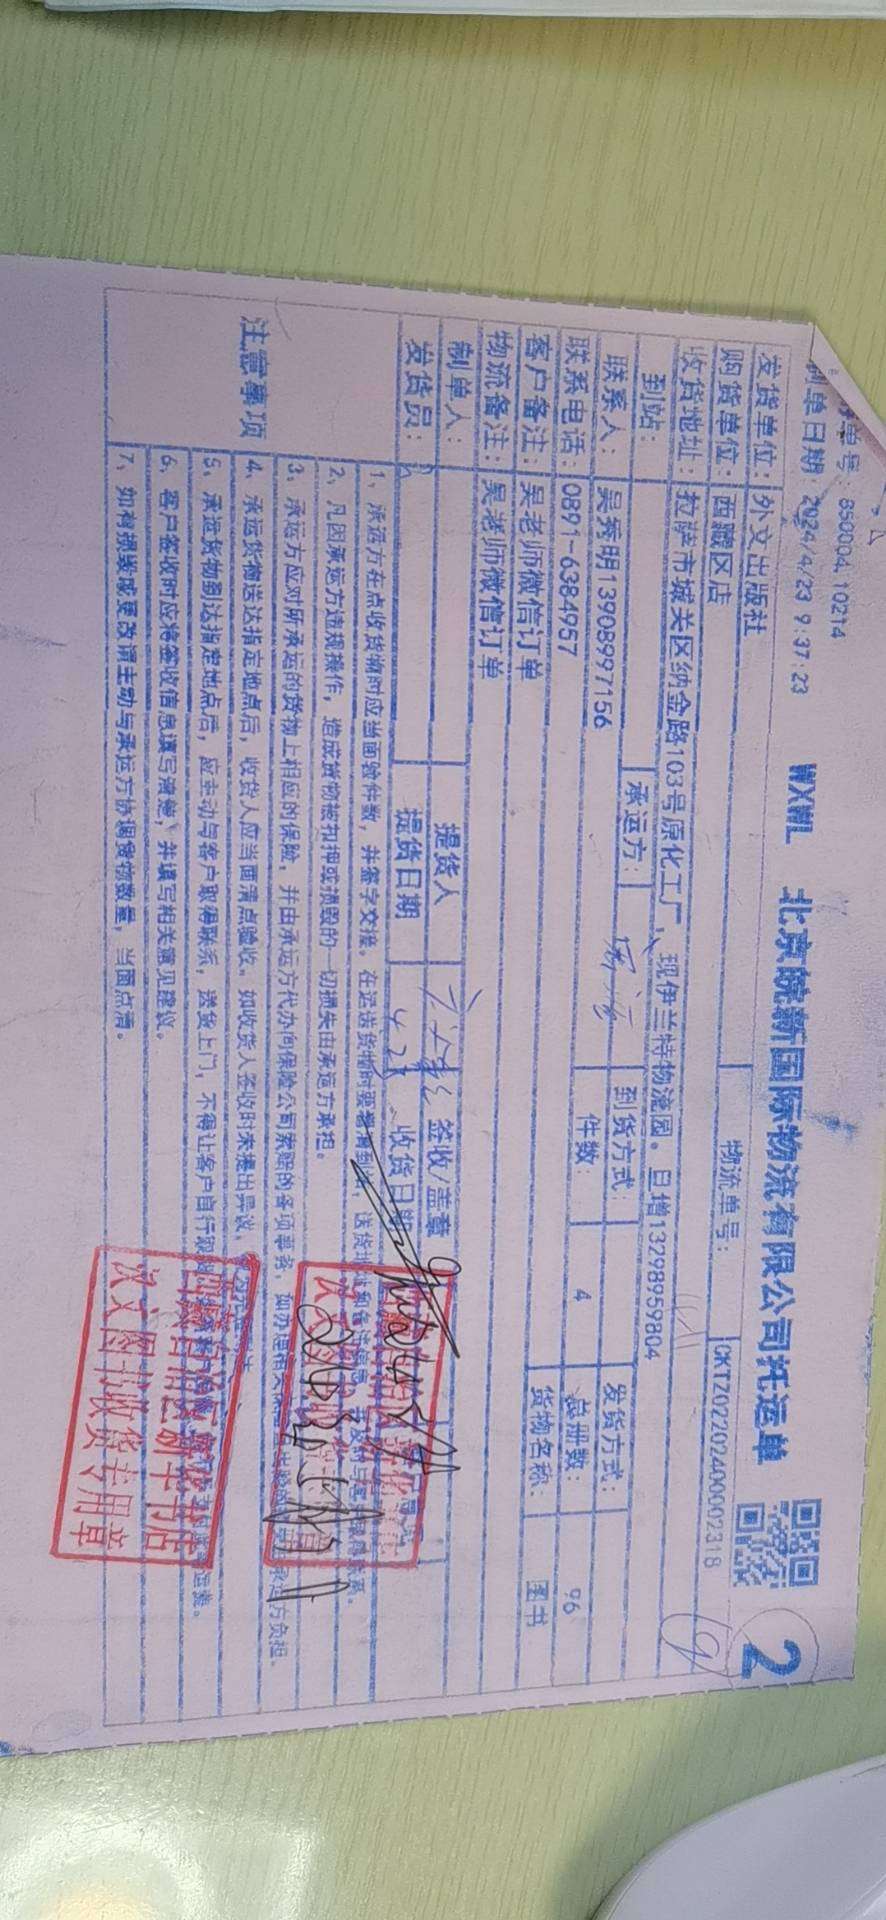 单号：850004.10214
制单日期：2024/4/23 9:37:23
WXWL 北京皖新国际物流有限公司托运单
2
发货单位：外文出版社
物流单号：CKTZ02202400002318
购货单位：西藏区店
收货地址：拉萨市城关区纳金路103号原化工厂，现伊兰特物流园。旦增13298959804
到站：
承运方：
到货方式：
发货方式：
联系人：吴秀明13908997156
件数：4
总册数：96
联系电话：0891-6384957
货物名称：图书
客户备注：吴老师微信订单
物流备注：吴老师微信订单
制单人：
提货人
签收/盖章
发货员：
提货日期 4.23
收货日期
注意事项
1、承运方在点收货物时应当面验件数，并签字交接。在运送货物时要
2、凡因承运方违规操作，造成货物被扣押或损毁的一切损失由承运方承担。
3、承运方应对所承运的货物上相应的保险，并由承运方代办向保险公司索赔的各项事务，如办理
承运方负担。
4、承运货物送达指定地点后，收货人应当面清点验收。如收货人签收时未提出异议，
5、承运货物到达指定地点后，应主动与客户取得联系，送货上门，不得让客户自行
6、客户签收时应将签收信息填写清楚，并填写相关意见建议。
7、如有损毁或更改请主动与承运方协调货物数量，当面点清。
西藏自治区新华书店
汉文图书收货专用章